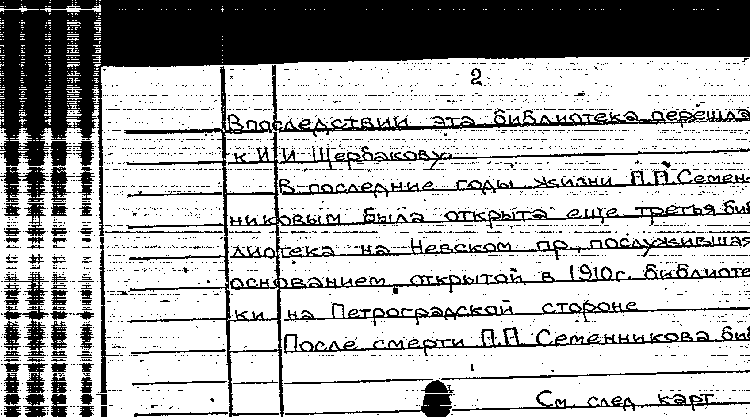 2
Впоследствии эта библиотека перешла
к И И Щербакову.
В последние годы жизни П.П. Семен-
никовым была открыта еще третья биб
лиотека на Невском пр., послужившая
основанием открытой в 1910 г. библиоте
ки на Петроградской стороне
После смерти П.П. Семенникова биб
См след карт